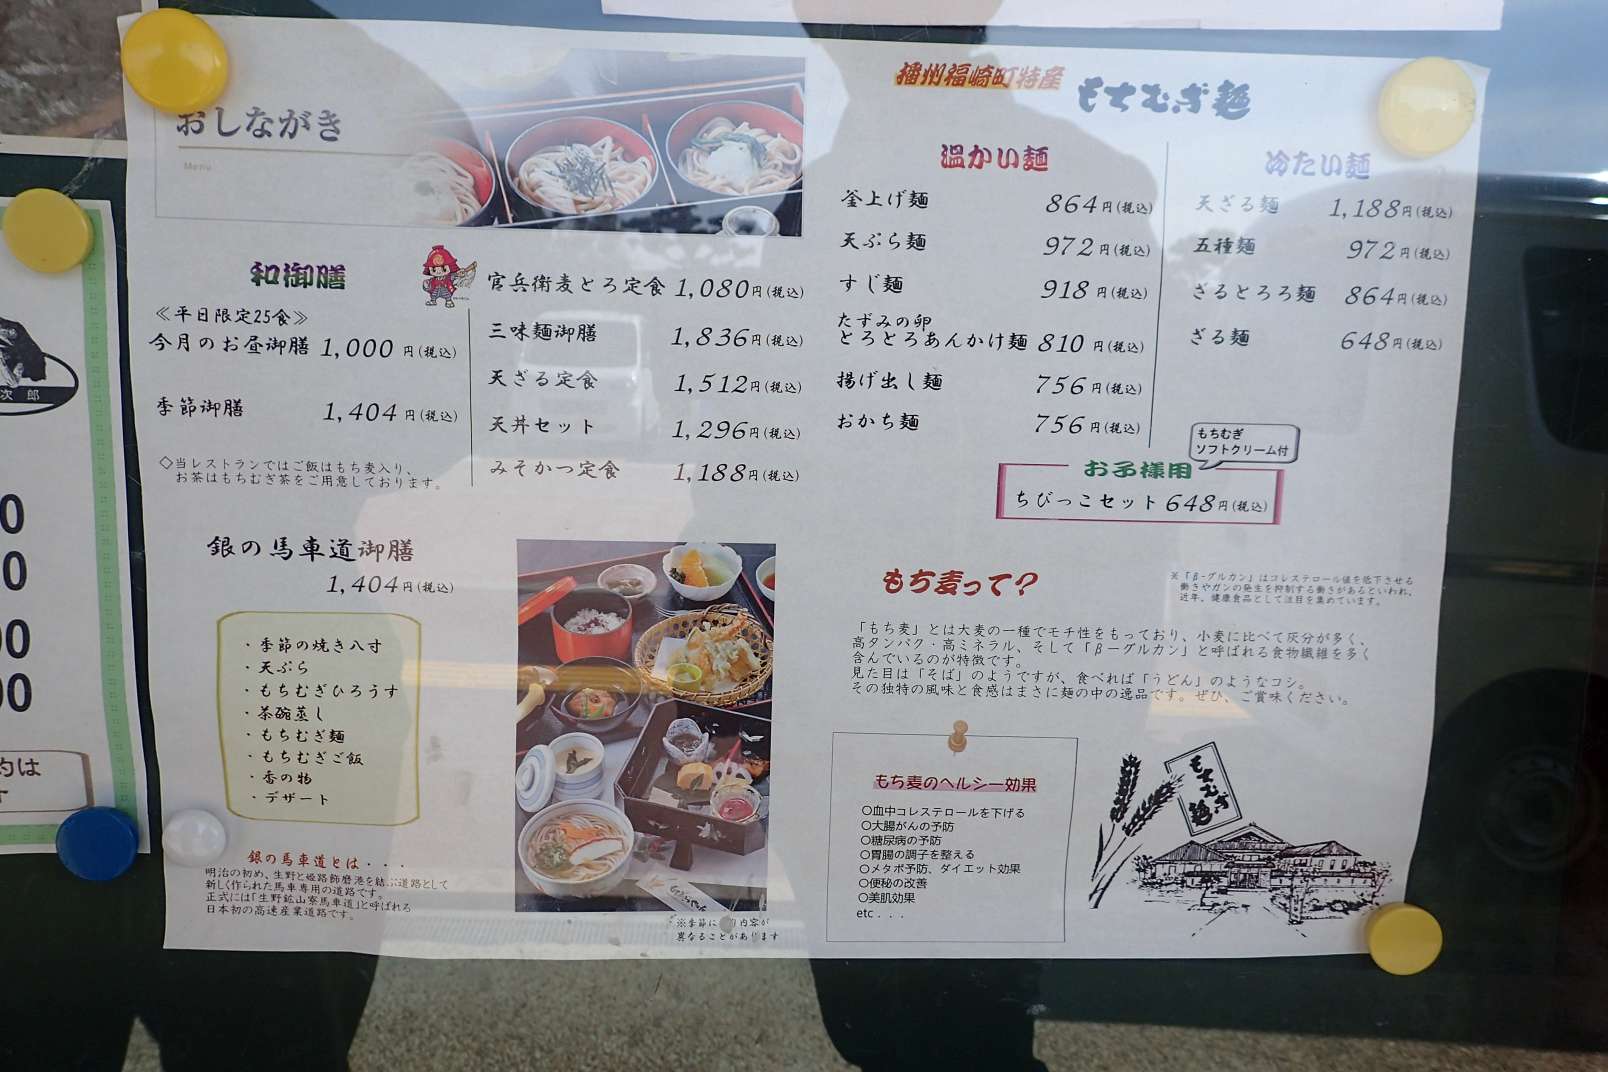 おしながき
Menu
和御膳
≪平日限定25食≫
今月のお昼御膳 1,000 円(税込)
季節御膳 1,404 円(税込)
◇当レストランではご飯はもち麦入り、
お茶はもちむぎ茶をご用意しております。
官兵衛麦とろ定食 1,080円(税込)
三味麺御膳 1,836円(税込)
天ざる定食 1,512円(税込)
天丼セット 1,296円(税込)
みそかつ定食 1,188円(税込)
銀の馬車道御膳
1,404円(税込)
・季節の焼き八寸
・天ぷら
・もちむぎひろうす
・茶碗蒸し
・もちむぎ麺
・もちむぎご飯
・香の物
・デザート
銀の馬車道とは・・・
明治の初め、生野と姫路飾磨港を結ぶ道路として
新しく作られた馬車専用の道路です。
正式には「生野鉱山寮馬車道」と呼ばれる
日本初の高速産業道路です。
※季節に 内容が
異なることがあります
播州福崎町特産
もちむぎ麺
温かい麺
釜上げ麺 864円(税込)
天ぷら麺 972円(税込)
すじ麺 918円(税込)
たずみの卵
とろとろあんかけ麺 810円(税込)
揚げ出し麺 756円(税込)
おかち麺 756円(税込)
冷たい麺
天ざる麺 1,188円(税込)
五種麺 972円(税込)
ざるとろろ麺 864円(税込)
ざる麺 648円(税込)
もちむぎ
ソフトクリーム付
お子様用
ちびっこセット 648円(税込)
もち麦って?
※「β-グルカン」はコレステロール値を低下させる
働きやガンの発生を抑制する働きがあるといわれ、
近年、健康食品として注目を集めています。
「もち麦」とは大麦の一種でモチ性をもっており、小麦に比べて灰分が多く、
高タンパク・高ミネラル、そして「β-グルカン」と呼ばれる食物繊維を多く
含んでいるのが特徴です。
見た目は「そば」のようですが、食べれば「うどん」のようなコシ。
その独特の風味と食感はまさに麺の中の逸品です。ぜひ、ご賞味ください。
もち麦のヘルシー効果
○血中コレステロールを下げる
○大腸がんの予防
○糖尿病の予防
○胃腸の調子を整える
○メタボ予防、ダイエット効果
○便秘の改善
○美肌効果
etc...
もちむぎ麺
次郎
約は